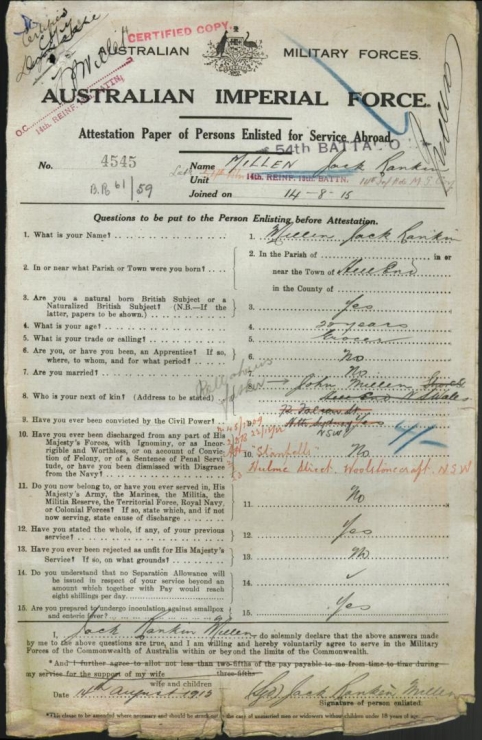 CERTIFIED COPY
AUSTRALIAN MILITARY FORCES.
AUSTRALIAN IMPERIAL FORCE.
O.C. 14th. REINF. BATTN.
Attestation Paper of Persons Enlisted for Service Abroad.
54th BATTA O
No. 4545 Name MILLEN Jack Rankin
Unit 14th. REINF. BATTN.
B.P. 61/59
Joined on 14-8-15
Questions to be put to the Person Enlisting before Attestation.
1. What is your Name? 1. Millen Jack Rankin
2. In or near what Parish or Town were you born? 2. In the Parish of in or
near the Town of
in the County of
3. Are you a natural born British Subject or a
Naturalized British Subject? (N.B.—If the
latter, papers to be shown.) 3. Yes
4. What is your age? 4. 20 years
5. What is your trade or calling? 5. Grocer
6. Are you, or have you been, an Apprentice? If so,
where, to whom, and for what period? 6. No
7. Are you married? 7. No
8. Who is your next of kin? (Address to be stated) 8. Father John Millen
N S Wales
N.S.W.
9. Have you ever been convicted by the Civil Power? 9.
10. Have you ever been discharged from any part of His
Majesty's Forces, with Ignominy, or as Incor-
rigible and Worthless, or on account of Convic-
tion of Felony, or of a Sentence of Penal Servi-
tude, or have you been dismissed with Disgrace
from the Navy? 10. No
Hulme Street. Woolstonecraft. N.S.W
11. Do you now belong to, or have you ever served in, His
Majesty's Army, the Marines, the Militia, the
Militia Reserve, the Territorial Force, Royal Navy,
or Colonial Forces? If so, state which, and if not
now serving, state cause of discharge 11. No
12. Have you stated the whole, if any, of your previous
service? 12. Yes
13. Have you ever been rejected as unfit for His Majesty's
Service? If so, on what grounds? 13. No
14. Do you understand that no Separation Allowance
will be issued in respect of your service beyond
an amount which together with Pay would reach
eight shillings per day. 14. ✓
15. Are you prepared to undergo inoculation against smallpox
and enteric fever? 15. Yes
I, Jack Rankin Millen do solemnly declare that the above answers made
by me to the above questions are true, and I am willing and hereby voluntarily agree to serve in the Military
Forces of the Commonwealth of Australia within or beyond the limits of the Commonwealth.
*And I further agree to allot not less than two-fifths of the pay payable to me from time to time during
my service for the support of my wife three-fifths
wife and children
Date 14th August 1915 (Sgd) Jack Rankin Millen
Signature of person enlisted.
*This clause to be amended where necessary and should be struck out in the case of unmarried men or widowers without children under 18 years of age.